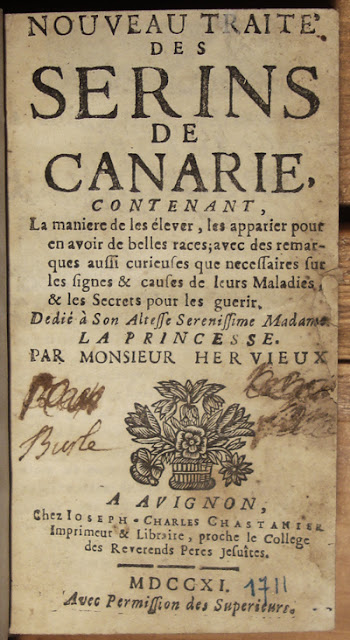 NOUVEAU TRAITÉ
DES
SERINS
DE
CANARIE,
CONTENANT,
La maniere de les élever, les apparier pour
en avoir de belles races; avec des remar-
ques aussi curieuses que necessaires sur
les signes & causes de leurs Maladies,
& les Secrets pour les guerir.
Dedié à Son Altesse Serenissime Madame
LA PRINCESSE.
PAR MONSIEUR HERVIEUX
A AVIGNON,
Chez IOSEPH-CHARLES CHASTANIER
Imprimeur & Libraire, proche le College
des Reverends Peres Jesuites.
MDCCXI. 1711
Avec Permission des Superieurs.